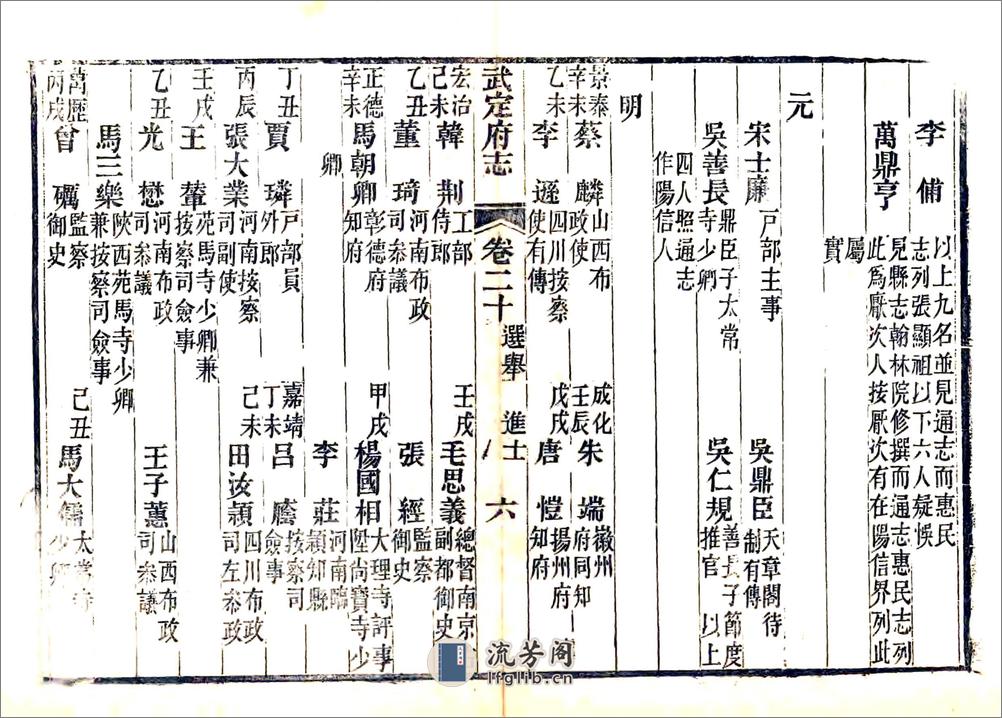 李 俌 以上九名並見通志而惠民
志列張顯祖以下六人疑悞
萬鼎亨 見縣志翰林院修撰而通志惠民志列
此為厭次人按厭次有在陽信界列此
屬
實
元
宋士廉 戶部主事 吳鼎臣 天章閣待
制有傳
吳善長 鼎臣子太常
寺少卿 吳仁規 善長子節度
推官 以上
四人照通志
作陽信人
明
景泰
辛未 蔡 麟 山西布
政使 成化
壬辰 朱 端 徽州
府同知
乙未 李 遜 四川按察
使有傳 戊戌 唐 愷 揚州府
知府
武定府志 卷二十 選舉 進士 六
宏治
己未 韓 荆 工部
侍郎 壬戌 毛思義 總督南京
副都御史
乙丑 董 琦 河南布政
司叅議 張 經 監察
御史
正德
辛未 馬朝卿 彰德府
知府 甲戌 楊國相 大理寺評事
陞尚寶寺少
卿 李 莊 河南臨
潁知縣
丁丑 賈 璘 戶部員
外郎 嘉靖
丁未 呂 𪷽 按察司
僉事
丙辰 張大業 河南按察
司副使 己未 田汝穎 四川布政
司左叅政
壬戌 王 輦 苑馬寺少卿兼
按察司僉事
乙丑 光 懋 河南布政
司叅議 王子蕙 山西布政
司叅議
馬三樂 陝西苑馬寺少卿
兼按察司僉事
萬歷
丙戌 曾 礪 監察
御史 己丑 馬大儒 太常寺
少卿
流芳阁
lfglib.cn